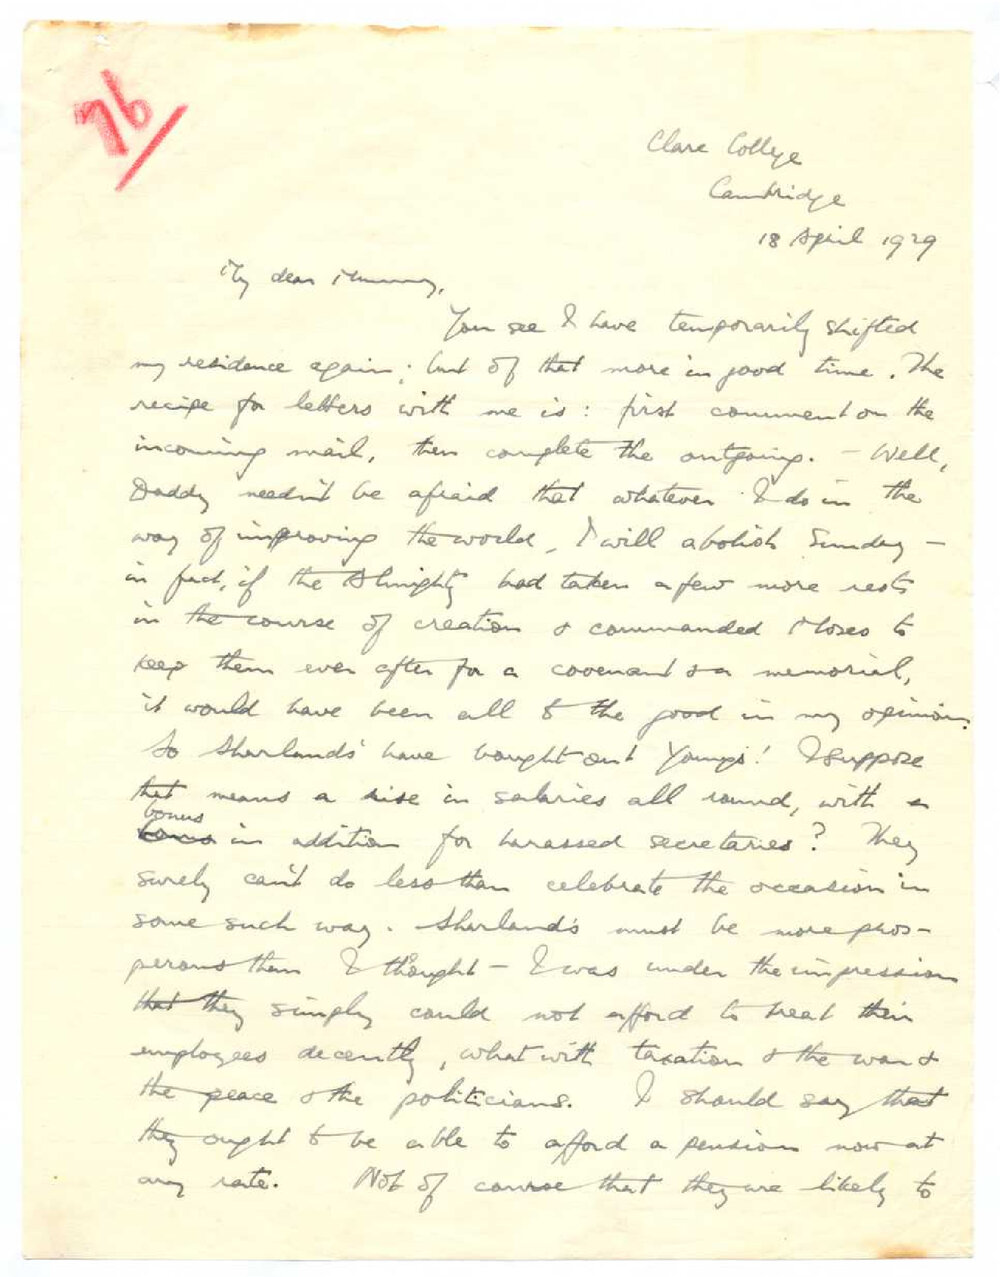 76/
Clare College
Cambridge
18 April 1929
My dear Mummy,
You see I have temporarily shifted
my residence again; but of that more in good time. The
recipe for letters with me is: first comment on the
incoming mail, then complete the outgoing. — Well,
Daddy needn't be afraid that whatever I do in the
way of improving the world, I will abolish Sunday —
in fact, if the Almighty had taken a few more rests
in the course of creation & commanded Moses to
keep them ever after for a covenant & a memorial,
it would have been all to the good in my opinion.
So Sharland's have bought out Youngs! I suppose
that means a rise in salaries all round, with a
bonus
in addition for harassed secretaries? They
surely can't do less than celebrate the occasion in
some such way. Sharland's must be more pros-
perous than I thought — I was under the impression
that they simply could not afford to treat their
employees decently, what with taxation & the war &
the peace & the politicians. I should say that
they ought to be able to afford a pension now at
any rate. Not of course that they are likely to